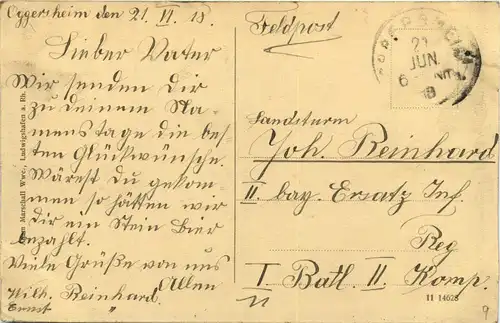 Oggersheim den 21. VI. 18.
Lieber Vater
Wir senden dir
zu deinem Na-
menstage die bes-
ten Glückwünsche.
Wärest du gekom-
men so hätten wir
dir ein Stein Bier
bezahlt.
Viele Grüße von uns
Allen
Wilh. Reinhard.
Ernst "
Marschall Wwe., Ludwigshafen a. Rh.
Feldpost
OGGERSHEIM
21
JUN.
6
18
Landsturm
Joh. Reinhard
II. bay. Ersatz Inf.
Reg
I. Batl. II. Komp.
11 14628
9